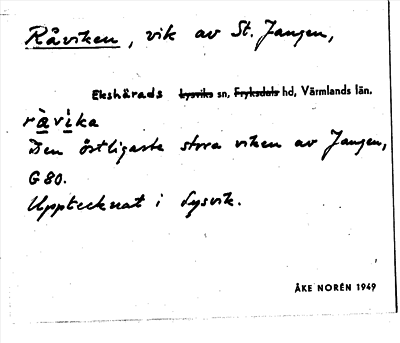 Råviken, vik av St. Jangen,
Ekshärads Lysviks sn, Fryksdals hd, Värmlands län.
ràvìka
Den östligaste stora viken av Jangen,
G 80.
Upptecknat i Lysvik.
ÅKE NORÉN 1949